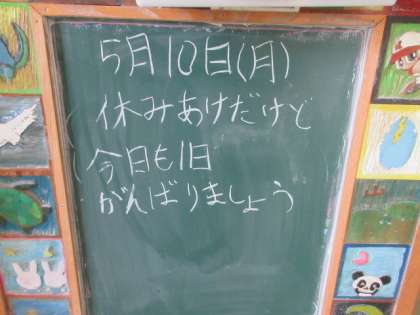 5月10日(月)
休みあけだけど
今日も1日
がんばりましょう